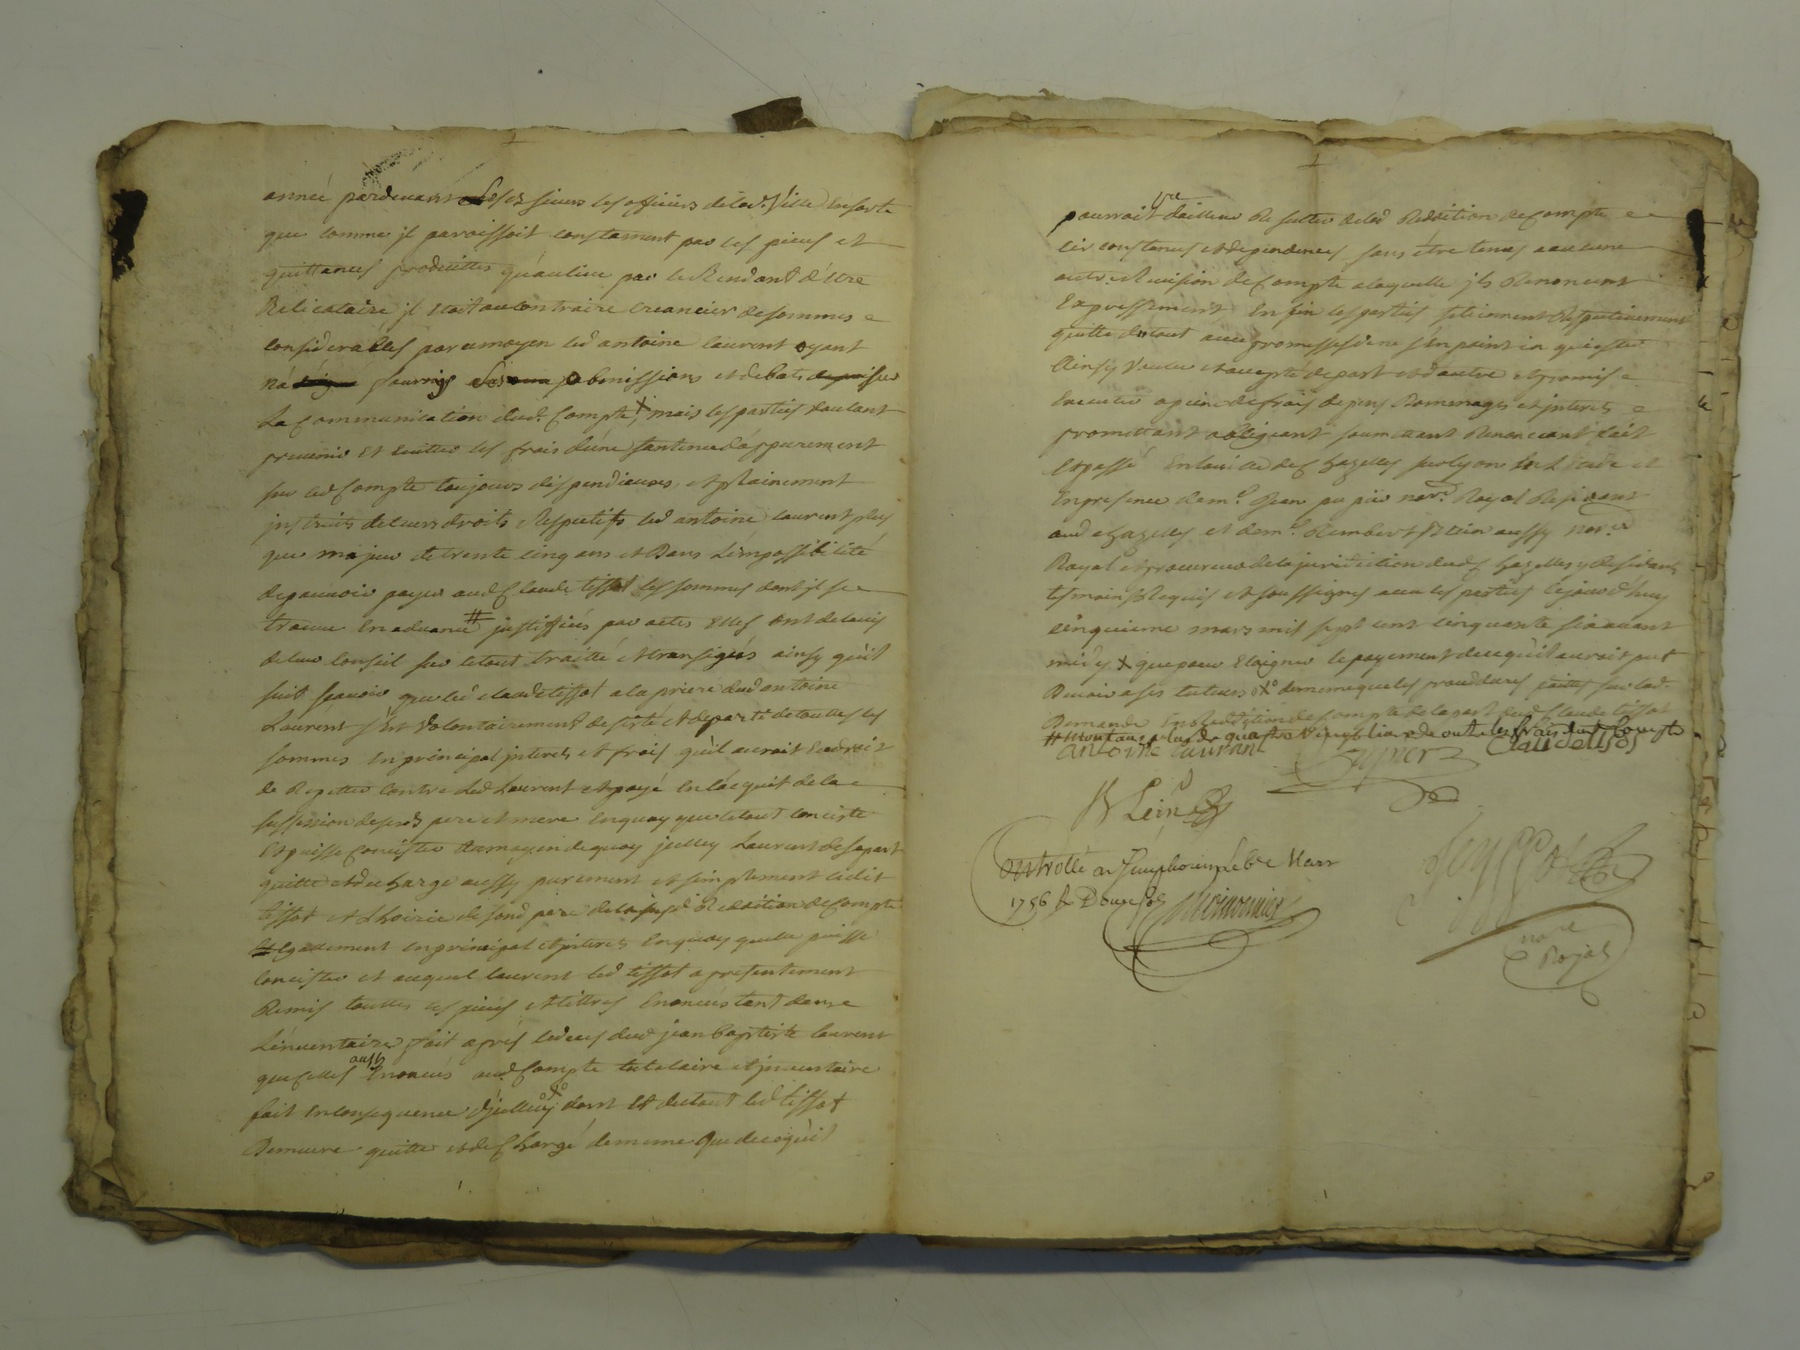 année pardevant les sieurs les officiers de lad. Ville ensorte
que comme jl paroissoit constament par les pieces et
quittances produittes qu'aulieu par le Rendant d'être
Relicataire jl etoit aucontraire Creancier desommes
considerables par cemoyen led antoine laurent ayant
fourny obmissions et debats
La Communication dud. Compte X mais les parties voulant
prevenir Et eviter les frais d'une santence d'appurement
sur led Compte toujours dispendieuses, et plainement
jnstruits deleurs droits Respectifs led antoine laurent plus
que majeur de trente cinq ans et Dans L'impossibilité
depouvoir payer aud Claude tissot les sommes dont jl se
trouve En advance # justiffiées par actes Elles ont de lavis
deleur Conseil sur letout traitté et transigés ainsy qu'il
suit scavoir que led claude tissot a la priere dud antoine
Laurent s'est Volontairement desisté et departi detouttes les
sommes En principal jnterets et frais qu'il auroit Endroit
de Repetter Contre Led Laurent et payé En l'acquit de la
succession desesd pere et mere Enquoy que letout Conciste
Et puisse Concister aumoyen dequoy jcelluy Laurent desapart
quitte et decharge aussy purement et simplement ledit
tissot et L'hoirie de sond pere Reddition de Compte
Egallement enprincipal et jnterets Enquoy quelle puisse
Concister et auquel laurent led tissot a presentement
Remis touttes les pieces et tittres Enoncés tant dans
L'inventaire fait aprés ledeces dud jean baptiste laurent
que Celles aussy Enoncés aud Compte tutelaire et jnventaire
fait En consequence dont Et dutout led tissot
Demeure quitte et deChargé dememe Que decequ'il
pourroit dailleurs Resulter delad Reddition de Compte
circonstances et dependences sans être tenus aaucune
autre Revision de Compte alaquelle jls Renoncent
Expressement Enfin les parties setiennent Respectivement
quitte dutout avec promesses dene s'en point inquieter
Ainsy Voulu et accepté depart et dautre et promis
Executer apeine defrais depens Domenages et jnterets
promettant obligeant soumettant Renoncant fait
Et passé En la ville de Chazelles sur Lyon En L'Etude et
En presence dem.e Jean papier no.re Royal Residant
aud Chazelles et dem.e Rambert stein aussy no.re
Royal et procureur de la jurisdiction dud Chazelles y Residant
temoins Requis et soussignés avec les parties Cejourd'huy
cinquieme mars mil sept cent cinquante six avant
midy X que pour Eloigner le payement de ce qu'il auroit put
Devoir a ses tuteurs dememe que les procedures faittes sur lad.
Demande En Reddition de Compte de lapart dud Claude tissot
# Montant plus de quatre Vingt livres de outre les frais dud Compte
antoine laurant Papier Claude tissot
Controllé a St Simphorien le 6e Mars
1756 R Douze sols
nore
Royal